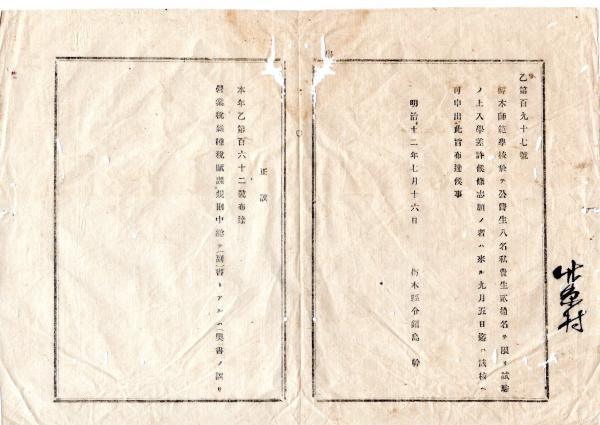 乙第百九十七號
栃木師範學校於テ公費生八名私費生貳拾名ヲ限リ試驗
ノ上入學差許候條志願ノ者ハ來ル九月五日迄ニ該校ヘ
可申出此旨布達候事
明治十二年七月十六日
栃木縣令鍋島 幹
正誤
本年乙第百六十二號布達
營業稅雜種稅賦課規則中 テ(副)書トアルハ(奧)書ノ誤リ
村